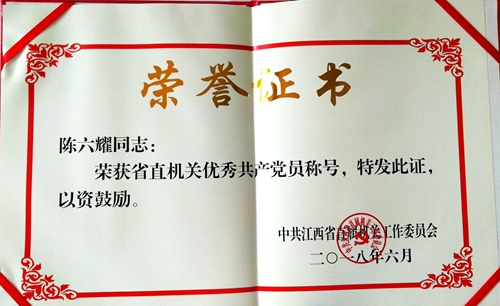 荣誉证书
陈六耀同志：
荣获省直机关优秀共产党员称号，特发此证，
以资鼓励。
中共江西省直属机关工作委员会
二〇一八年六月